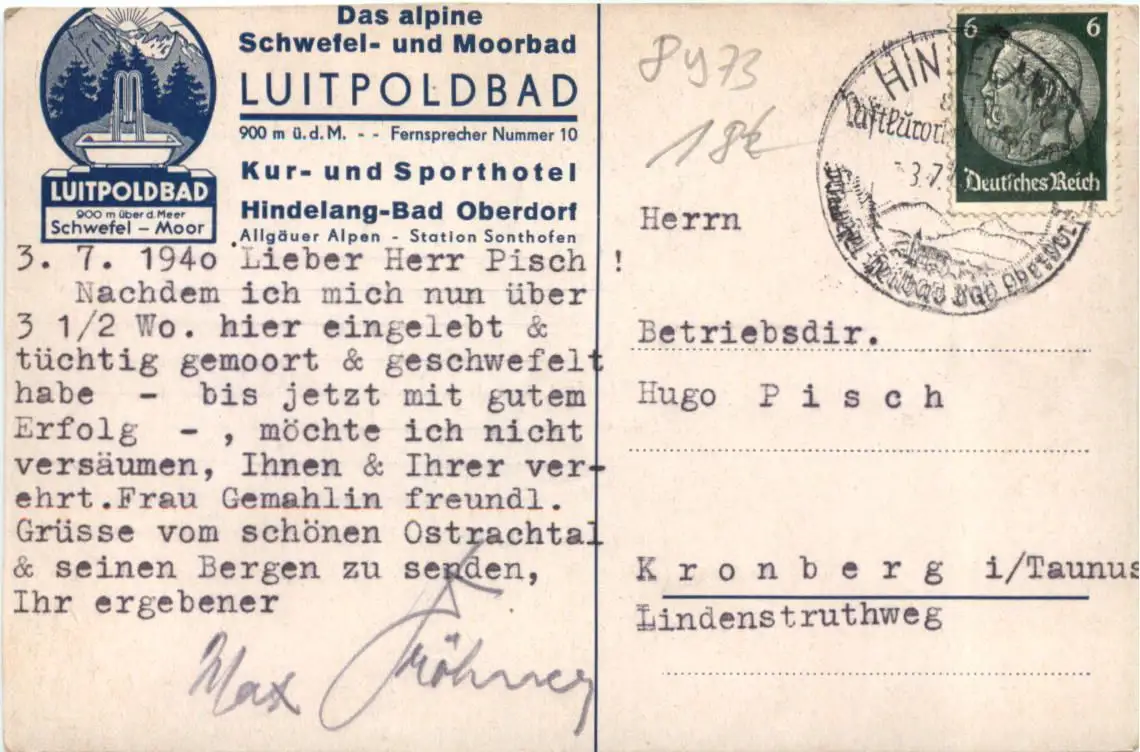 Das alpine
Schwefel- und Moorbad
LUITPOLDBAD
900 m ü.d.M. - - Fernsprecher Nummer 10
Kur- und Sporthotel
Hindelang-Bad Oberdorf
Allgäuer Alpen - Station Sonthofen
LUITPOLDBAD
900 m über d. Meer
Schwefel - Moor
3. 7. 1940 Lieber Herr Pisch !
Nachdem ich mich nun über
3 1/2 Wo. hier eingelebt &
tüchtig gemoort & geschwefelt
habe - bis jetzt mit gutem
Erfolg - , möchte ich nicht
versäumen, Ihnen & Ihrer ver-
ehrt.Frau Gemahlin freundl.
Grüsse vom schönen Ostrachtal
& seinen Bergen zu senden,
Ihr ergebener
Max
8973
18€
HIN
Luftkurort
3.7.
6 6
Deutsches Reich
Herrn
Betriebsdir.
Hugo P i s c h
K r o n b e r g i/Taunus
Lindenstruthweg